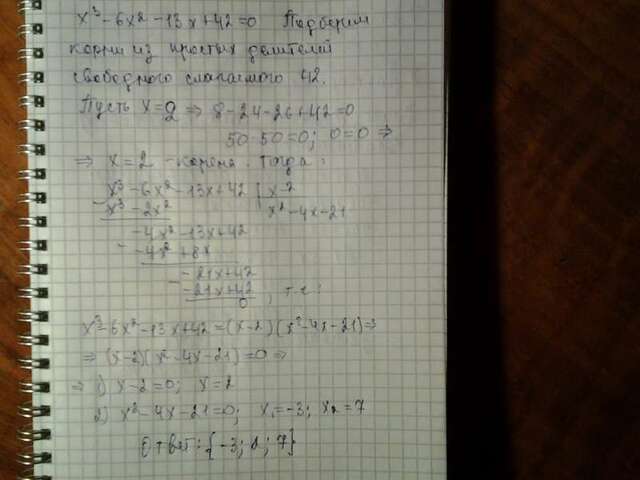 x³-6x²-13x+42=0 Подберим
корни из простых делителей
свободного слагаемого 42.
Пусть x=2 ⇒ 8-24-26+42=0
50-50=0; 0=0 ⇒
⇒ x=2 -корень. Тогда:
x³-6x²-13x+42 | x-2
- x³-2x² x²-4x-21
-4x²-13x+42
- -4x²+8x
-21x+42
- -21x+42
0, т.е:
x³-6x²-13x+42=(x-2)(x²-4x-21)⇒
⇒ (x-2)(x²-4x-21)=0 ⇒
⇒ 1) x-2=0; x=2
2) x²-4x-21=0; x₁=-3; x₂=7
Ответ:{-3; 2; 7}